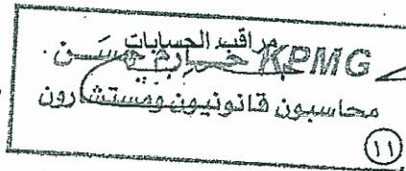 مراقب الحسابات
KPMG حازم حسن
محاسبون قانونيون ومستشارون
(١١)